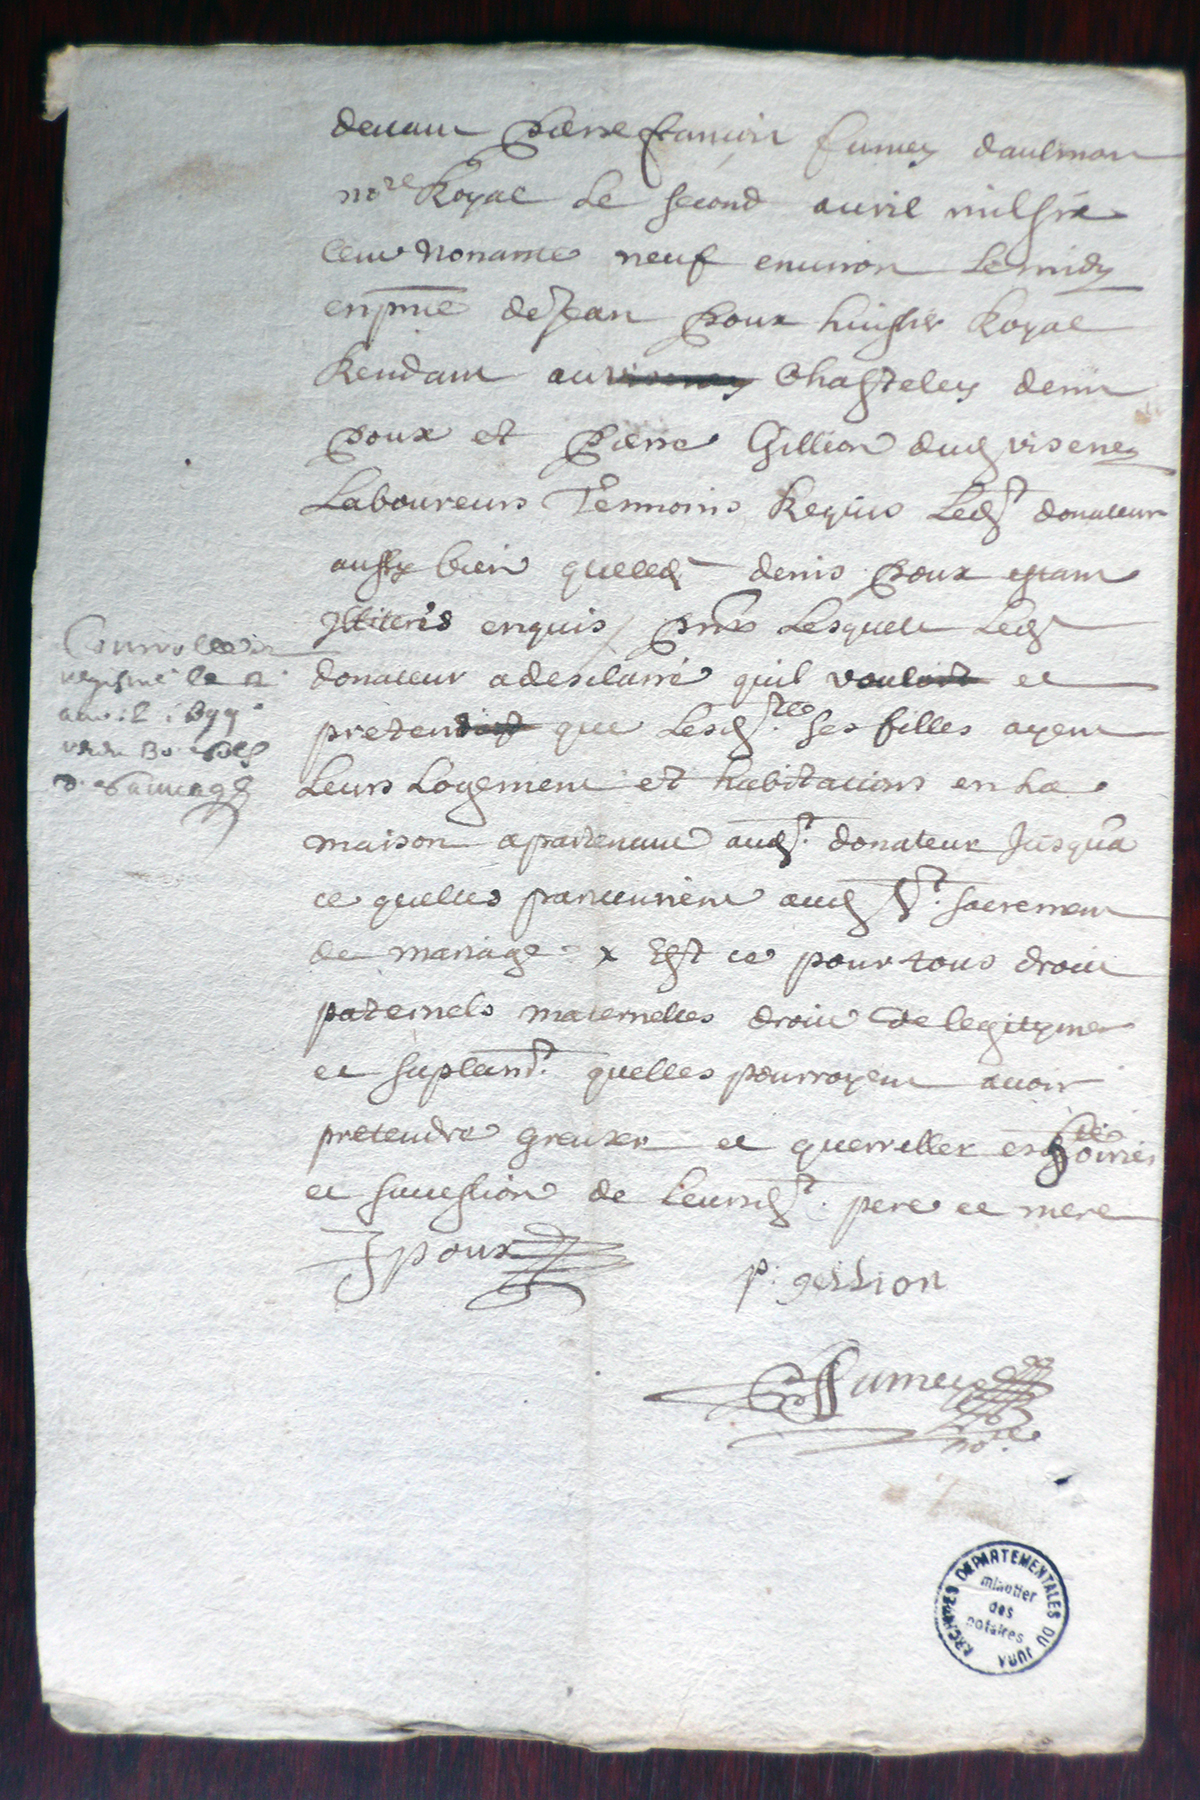 devant Pierre francoin fumey daulmon
nore Royal le second avril mil six
cent nonante neuf environ le midy
en pnce de Jean Poux huissier Royal
Residant au visenay Chasteley denis
Poux et Pierre Gillion dud visenay
Laboureurs Temoins Requis Ledt donateur
aussy bien que led denis Poux estant
Illiterés enquis, pns Lesquels Ledt
donateur a desclairé quil vouloit et
pretendoit que Lesdtes ses filles ayent
Leurs Logement et habitations en La
maison apartenant audt donateur Jusqua
ce quelles parviennent aud St sacrement
de mariage x Est ce pour tous droits
paternels maternelles droit de legityme
et suplant quelles pourroyent avoir
pretendre et querreller esd hoiries
et succession de leursdt pere et mere
Controllé et
registré le 12
avril 1699
D. Sauvage
J poux
p. gillion
P f fumey
nore
ARCHIVES DEPARTEMENTALES DU JURA
minutier
des
notaires